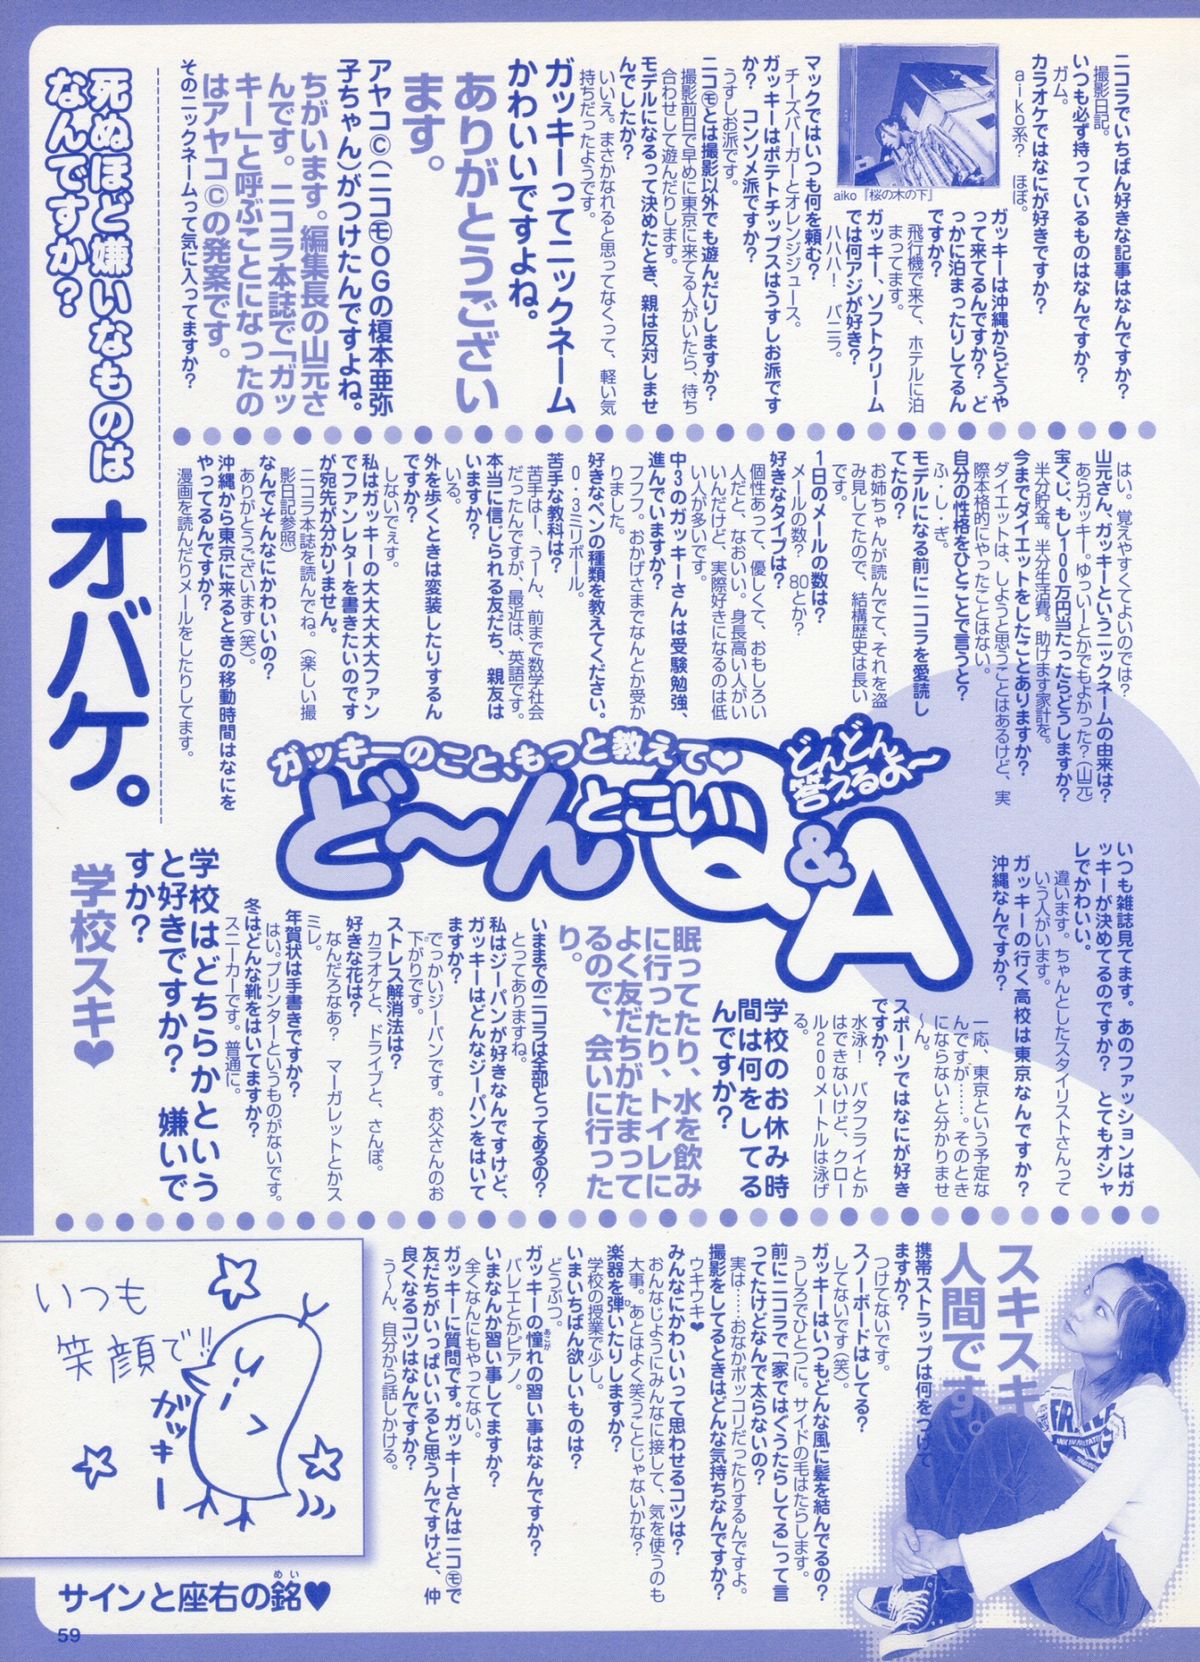 ニコラでいちばん好きな記事はなんですか?
撮影日記。
いつも必ず持っているものはなんですか?
ガム。
カラオケではなにが好きですか?
aiko系? ほぼ。
aiko『桜の木の下』
ガッキーは沖縄からどうや
って来てるんですか? ど
っかに泊まったりしてるん
ですか?
飛行機で来て、ホテルに泊
まってます。
ガッキー、ソフトクリーム
では何アジが好き?
ハハハ! バニラ。
マックではいつも何を頼む?
チーズバーガーとオレンジジュース。
ガッキーはポテトチップスはうすしお派です
か? コンソメ派ですか?
うすしお派です。
ニコ㋲とは撮影以外でも遊んだりしますか?
撮影前日で早めに東京に来てる人がいたら、待ち
合わせして遊んだりします。
モデルになるって決めたとき、親は反対しませ
んでしたか?
いいえ。まさかなれると思ってなくって、軽い気
持ちだったようです。
ガッキーってニックネーム
かわいいですよね。
ありがとうござい
ます。
アヤコ©(ニコ㋲OGの榎本亜弥
子ちゃん)がつけたんですよね。
ちがいます。編集長の山元さ
んです。ニコラ本誌で「ガッ
キー」と呼ぶことになったの
はアヤコ©の発案です。
そのニックネームって気に入ってますか?
死ぬほど嫌いなものは
なんですか?
オバケ。
はい。覚えやすくてよいのでは?
山元さん、ガッキーというニックネームの由来は?
あらガッキー。ゆっいーとかでもよかった?(山元)
宝くじ、もし100万円当たったらどうしますか?
半分貯金。半分生活費。助けます家計を。
今までダイエットをしたことありますか?
ダイエットは、しようと思うことはあるけど、実
際本格的にやったことはない。
自分の性格をひとことで言うと?
ふ・し・ぎ。
モデルになる前にニコラを愛読し
てたの?
お姉ちゃんが読んでて、それを盗
み見してたので、結構歴史は長い
です。
1日のメールの数は?
メールの数? 80とか?
好きなタイプは?
個性あって、優しくて、おもしろい
人だと、なおいい。身長高い人がい
いんだけど、実際好きになるのは低
い人が多いです。
中3のガッキーさんは受験勉強、
進んでいますか?
フフフ。おかげさまでなんとか受か
りました。
好きなペンの種類を教えてください。
0・3ミリボール。
苦手な教科は?
苦手はー、うーん、前まで数学社会
だったんですが、最近は、英語です。
本当に信じられる友だち、親友は
いますか?
いる。
外を歩くときは変装したりするん
ですか?
しないでぇす。
私はガッキーの大大大大大ファン
でファンレターを書きたいのです
が宛先が分かりません。
ニコラ本誌を読んでね。(楽しい撮
影日記参照)
なんでそんなにかわいいの?
ありがとうございます(笑)。
沖縄から東京に来るときの移動時間はなにを
やってるんですか?
漫画を読んだりメールをしたりしてます。
ガッキーのこと、もっと教えて♥
ど〜んとこいQ&A
どんどん
答えるよ〜
いつも雑誌見てます。あのファッションはガ
ッキーが決めてるのですか? とてもオシャ
レでかわいい。
違います。ちゃんとしたスタイリストさんって
いう人がいます。
ガッキーの行く高校は東京なんですか?
沖縄なんですか?
一応、東京という予定な
んですが……。そのとき
にならないと分かりませ
〜ん。
スポーツではなにが好き
ですか?
水泳! バタフライとか
はできないけど、クロー
ル200メートルは泳げ
る。
学校のお休み時
間は何をしてる
んですか?
眠ってたり、水を飲み
に行ったり、トイレに
よく友だちがたまって
るので、会いに行った
り。
いままでのニコラは全部とってあるの?
とってありますね。
私はジーパンが好きなんですけど、
ガッキーはどんなジーパンをはいて
ますか?
でっかいジーパンです。お父さんのお
下がりです。
ストレス解消法は?
カラオケと、ドライブと、さんぽ。
好きな花は?
なんだろなあ? マーガレットとかス
ミレ。
年賀状は手書きですか?
はい。プリンターというものがないです。
冬はどんな靴をはいてますか?
スニーカーです。普通に。
学校はどちらかという
と好きですか? 嫌いで
すか?
学校スキ♥
スキスキ
人間です。
携帯ストラップは何をつけて
ますか?
つけてないです。
スノーボードはしてる?
してないです(笑)。
ガッキーはいつもどんな風に髪を結んでるの?
うしろでひとつに。サイドの毛はたらします。
前にニコラで、「家ではぐうたらしてる」って言
ってたけどなんで太らないの?
実は……おなかポッコリだったりするんですよ。
撮影をしてるときはどんな気持ちなんですか?
ウキウキ♥
みんなにかわいいって思わせるコツは?
おんなじようにみんなに接して、気を使うのも
大事。あとはよく笑うことじゃないかな?
楽器を弾いたりしますか?
学校の授業で少し。
いまいちばん欲しいものは?
どうぶつ。
ガッキーの憧れの習い事はなんですか?
あこが
バレエとかピアノ。
いまなんか習い事してますか?
全くなんにもやってない。
ガッキーに質問です。ガッキーさんはニコ㋲で
友だちがいっぱいいると思うんですけど、仲
良くなるコツはなんですか?
う〜ん、自分から話しかける。
いつも
笑顔で!!
ガッキー
サインと座右の銘♥
めい
59